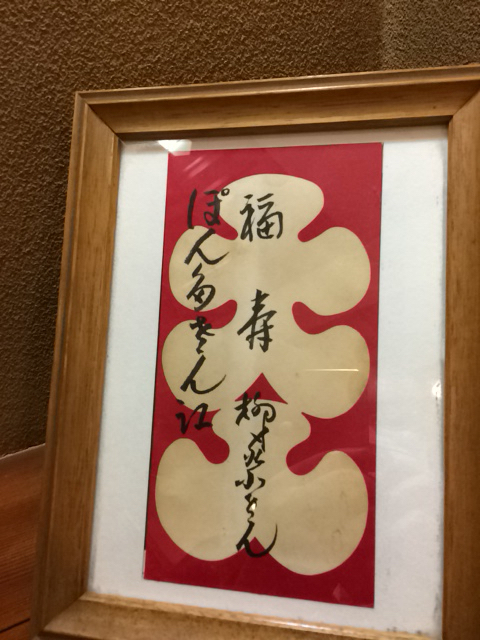 福寿 柳家小さん
ぽん多さん江